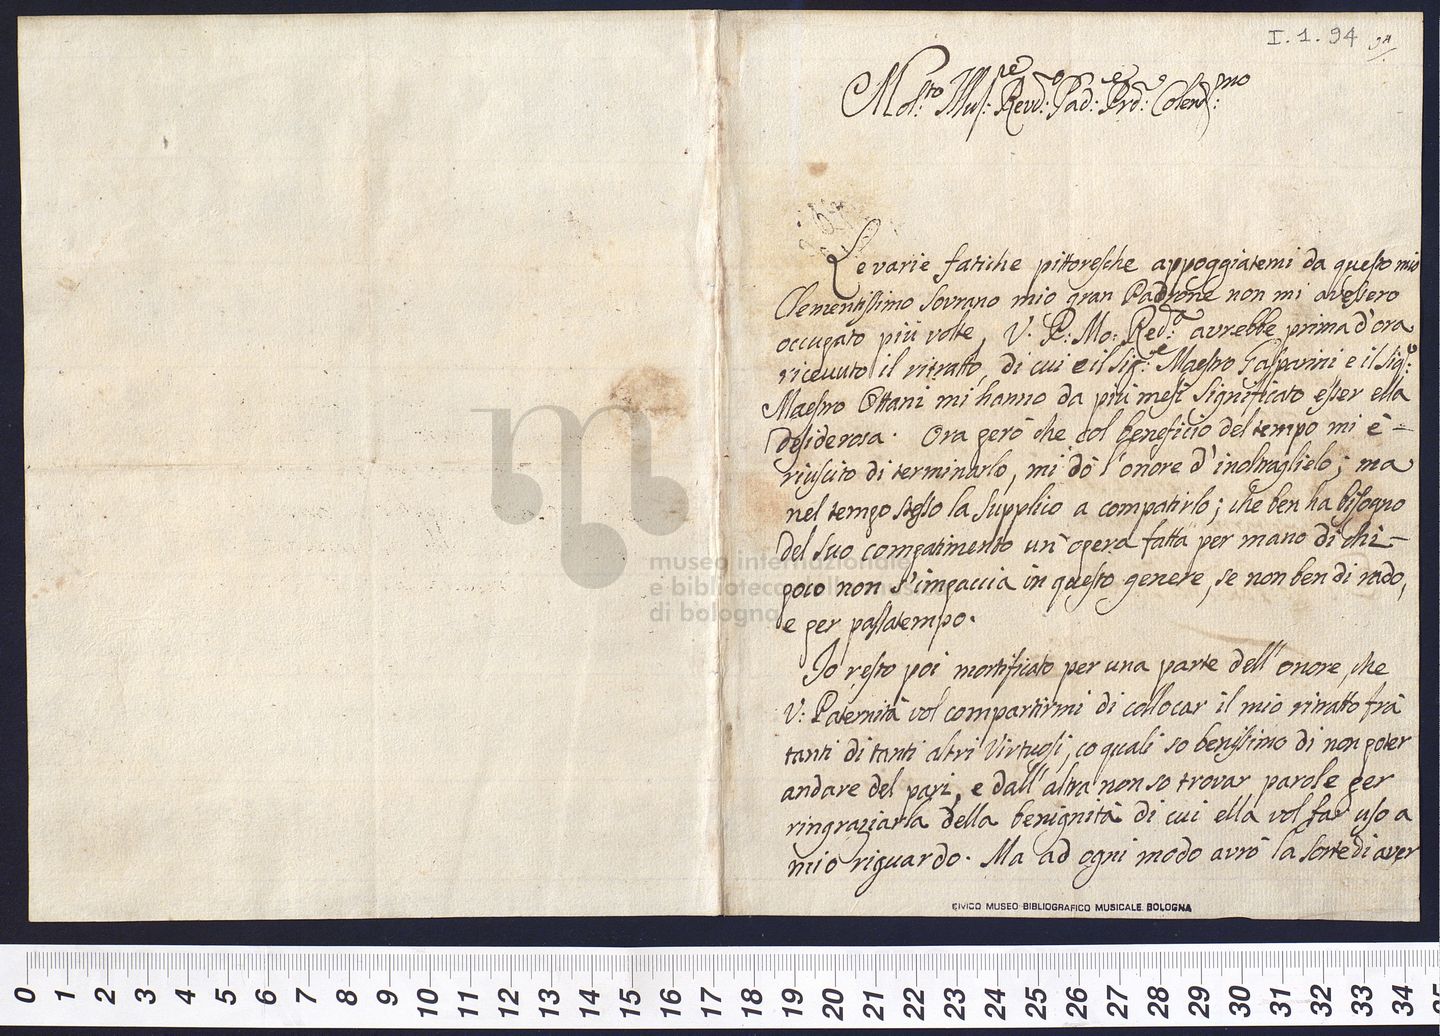 I. 1. 94
Mol:to Illus:re Revd:o Pad:e Prd:e Colend:mo
Le varie fatiche pittoresche appoggiatemi da questo mio
Clementissimo Sovrano mio gran Padrone non mi avessero
occupato più volte, V. P: Mo: Red:a avrebbe prima d'ora
ricevuto il ritratto, di cui e il Sig:e Maestro Gasparini e il Sig:e
Maestro Ottani mi hanno da più mesi significato esser ella
desiderosa. Ora però che col beneficio del tempo mi è –
riuscito di terminarlo, mi dò l'onore d'inoltraglielo; ma
nel tempo stesso la supplico a compatirlo; che ben ha bisogno
del suo compatimento un'opera fatta per mano di chi –
poco non s'impaccia in questo genere, se non ben di rado,
e per passatempo.
Io resto poi mortificato per una parte dell'onore, che
V: Paternità vol compartirmi di collocar il mio ritratto frà
tanti di tanti altri Virtuosi, co quali so benissimo di non poter
andare del pari, e dall'altra non so trovar parole per
ringraziarla della benignità di cui ella vol far uso a
mio riguardo. Ma ad ogni modo avrò la sorte di aver
CIVICO MUSEO BIBLIOGRAFICO MUSICALE BOLOGNA
museo internazionale
e biblioteca della musica
di bologna
0 1 2 3 4 5 6 7 8 9 10 11 12 13 14 15 16 17 18 19 20 21 22 23 24 25 26 27 28 29 30 31 32 33 34 35